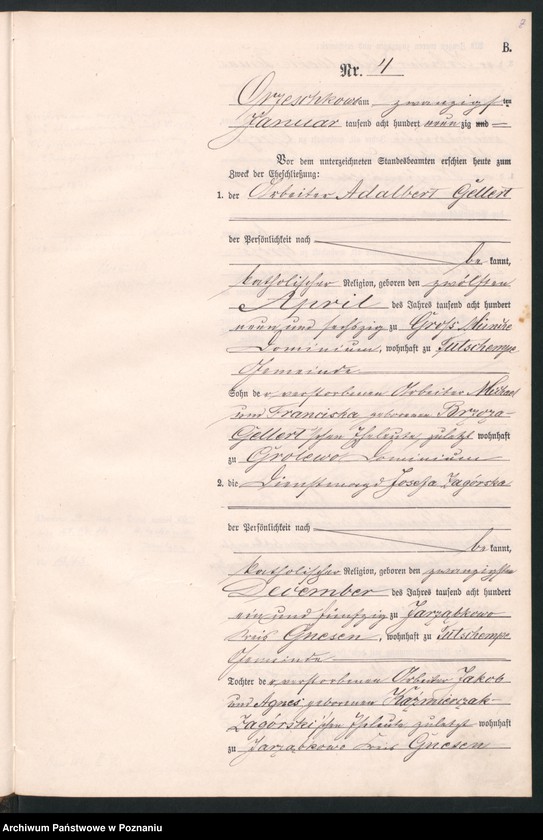 B.
Nr. 4
Orzeschkowo am zwanzigsten
Januar tausend acht hundert neunzig und
Vor dem unterzeichneten Standesbeamten erschien heute zum
Zweck der Eheschließung:
1. der Arbeiter Adalbert Gellert
der Persönlichkeit nach
be kannt,
katholischer Religion, geboren den zwölften
April des Jahres tausend acht hundert
neun und sechszig zu Groß Münche
Dominium, wohnhaft zu Tutschempe
Gemeinde
Sohn der verstorbenen Arbeiter Michael
und Franciska geborenen
Gellert'schen Eheleute zuletzt wohnhaft
zu Grolewo Dominium
2. die Dienstmagd Josefa Zagórska
der Persönlichkeit nach
be kannt,
katholischer Religion, geboren den zwanzigsten
December des Jahres tausend acht hundert
ein und fünfzig zu Jarząbkowo
Kreis Gnesen, wohnhaft zu Tutschempe
Gemeinde
Tochter der verstorbenen Arbeiter Jakob
und Agnes geborenen Kaźmierczak-
Zagórski'schen Eheleute zuletzt wohnhaft
zu Jarząbkowo Kreis Gnesen
Archiwum Państwowe w Poznaniu